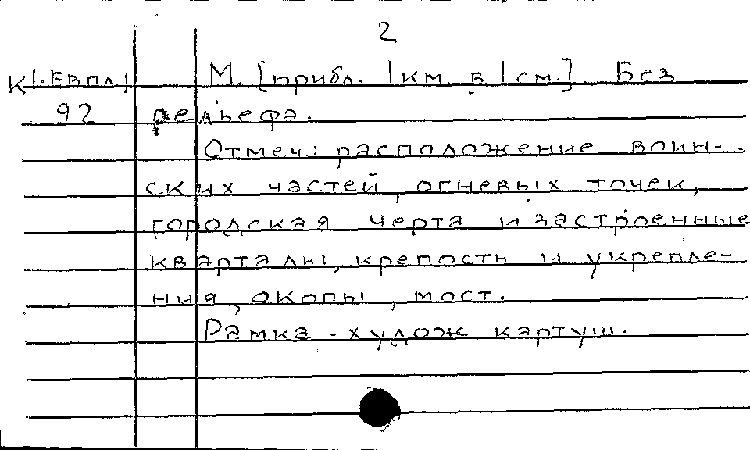 2
К1.Евпл1 М. [прибл. 1км. в 1см.]. Без
92 рельефа.
Отмеч: расположение воин-
ских частей, огневых точек,
городская черта и застроенные
кварталы, крепость и укрепле-
ния, окопы, мост.
Рамка - худож картуш.